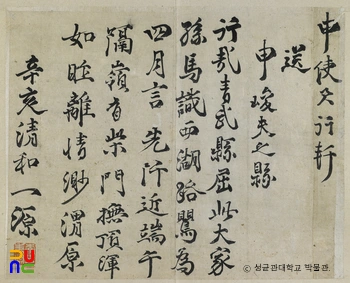 申使君行軒
送
申峻夫之縣
行哉青武縣屈此大家
孫馬識西湖路鶯為
四月言先汀近端午
隔嶺有柴門撫頂渾
如昨離情渺渭原
辛亥清和一源
© 성균관대학교 박물관.